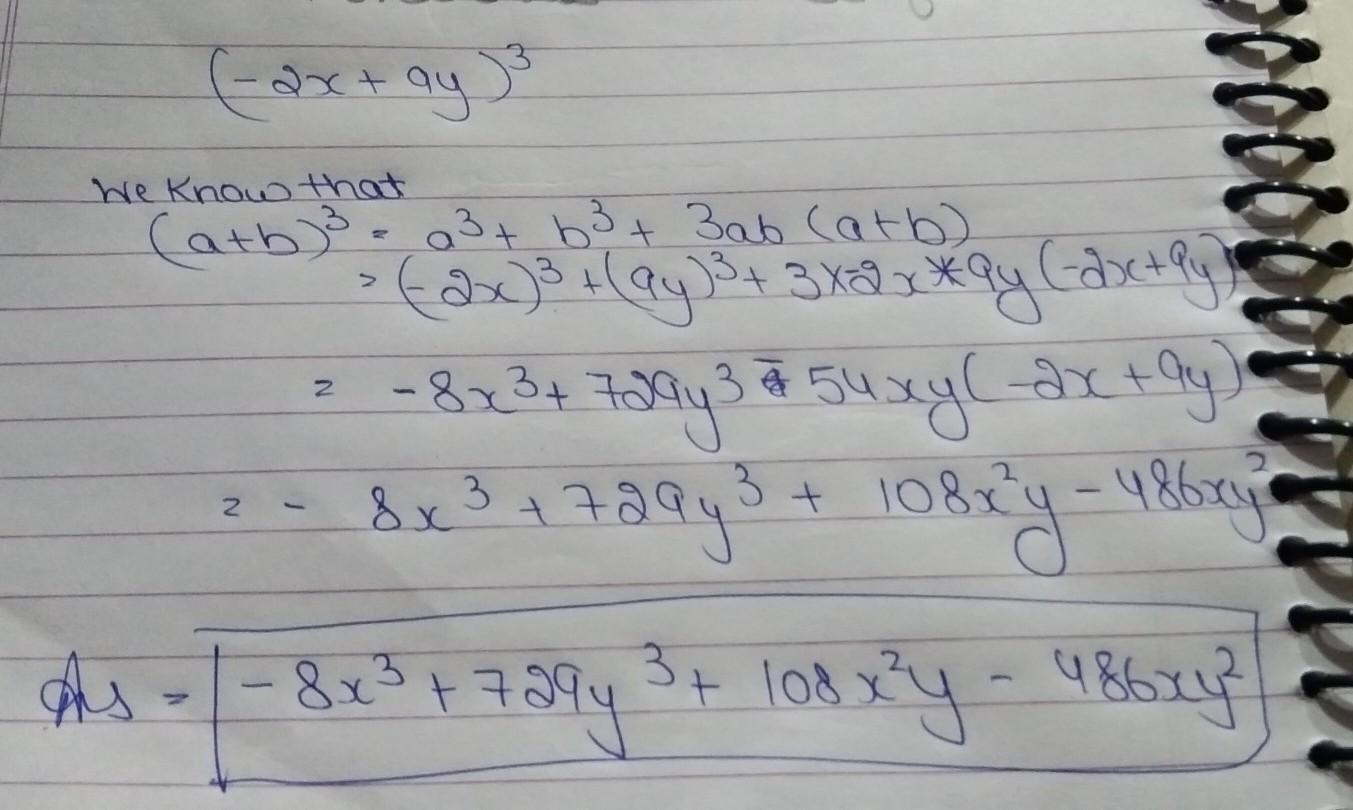 (-2x + 9y)³
We Know that
(a+b)³ = a³ + b³ + 3ab (a+b)
= (-2x)³ + (9y)³ + 3x-2x*9y (-2x+9y)
= -8x³ + 729y³ - 54xy( -2x + 9y)
= - 8x³ + 729y³ + 108x²y - 486xy²
As = -8x³ + 729y³ + 108x²y - 486xy²